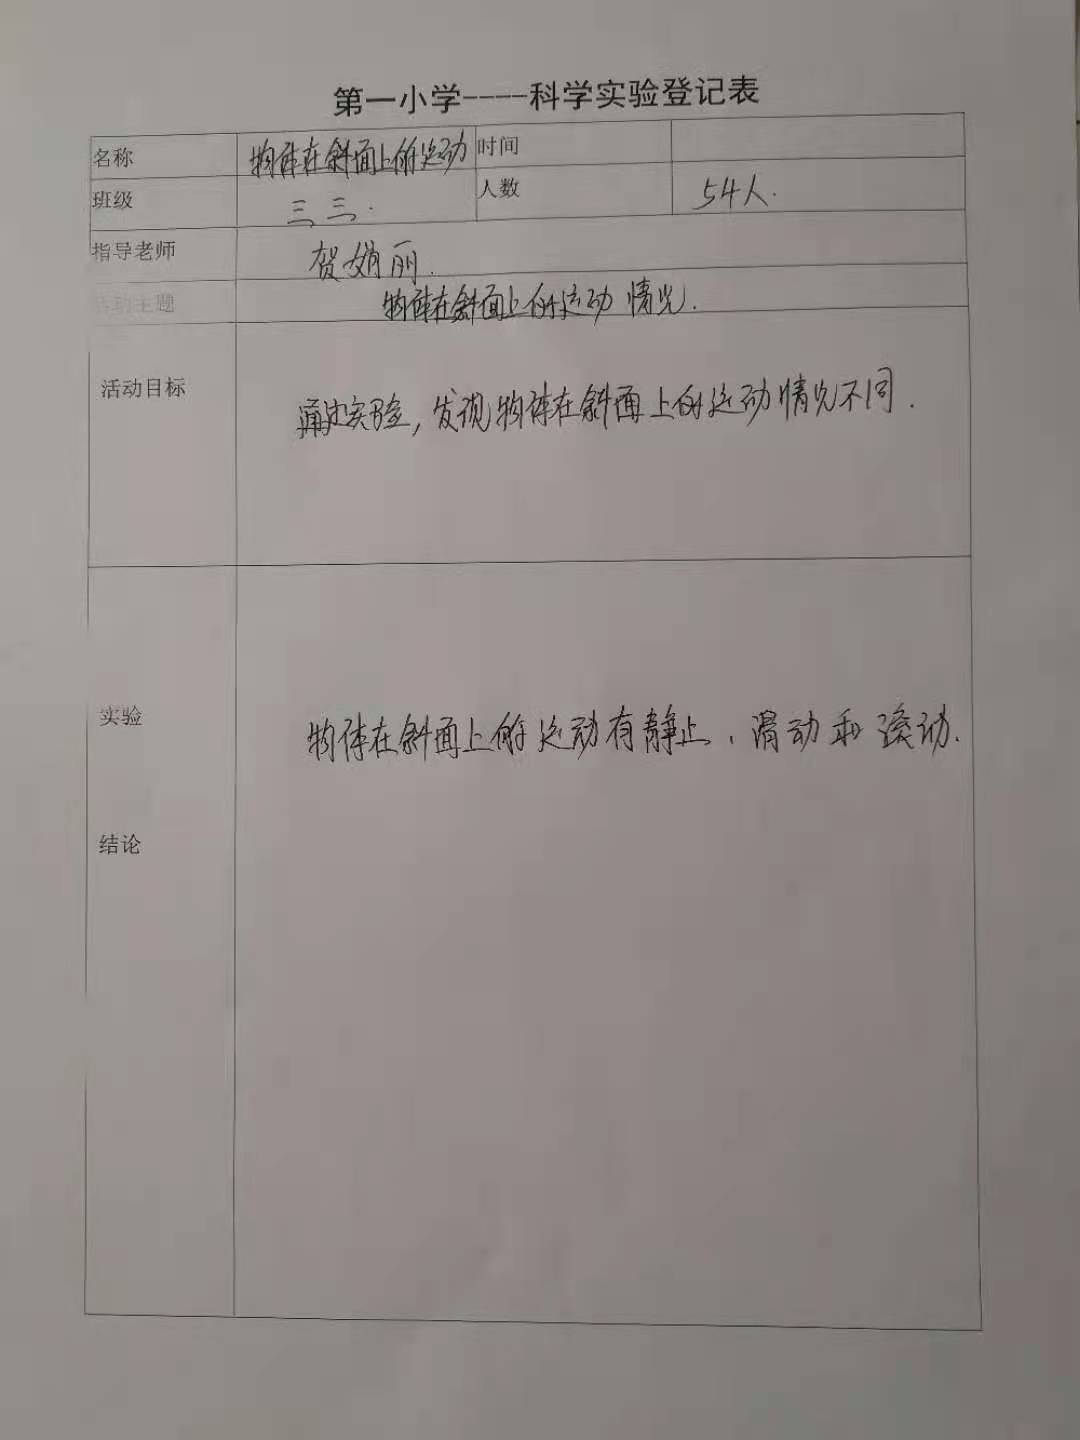 第一小学----科学实验登记表
名称 物体在斜面上的运动 时间
班级 三三. 人数 54人.
指导老师 贺娟丽.
活动主题 物体在斜面上的运动情况.
活动目标 通过实验,发现物体在斜面上的运动情况不同.
实验 物体在斜面上的运动有静止、滑动和滚动.
结论